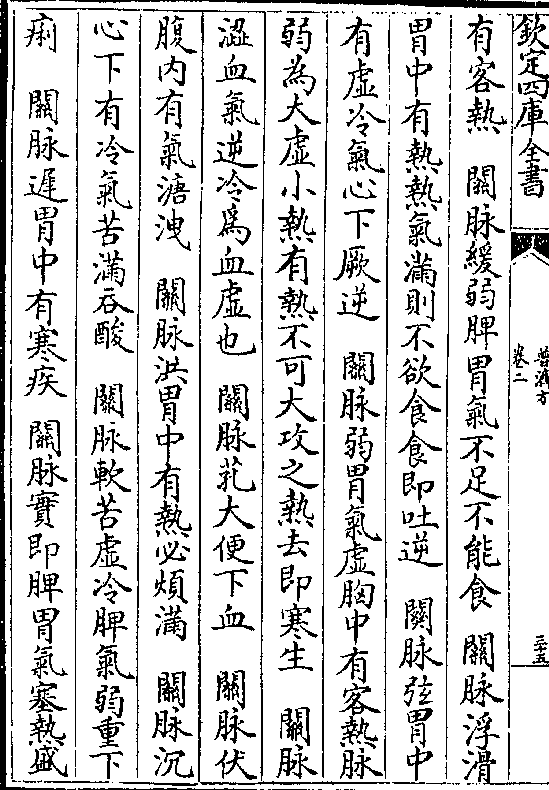 欽定四庫全書
普濟方
卷二
三十五
有客熱　關脉緩弱脾胃氣不足不能食　關脉浮滑
胃中有熱熱氣滿則不欲食食即吐逆　關脉弦胃中
有虛冷氣心下厥逆　關脉弱胃氣虛胸中有客熱脉
弱為大虛小熱有熱不可大攻之熱去即寒生　關脉
澀血氣逆冷爲血虛也　關脉芤大便下血　關脉伏
腹内有氣溏洩　關脉洪胃中有熱必煩滿　關脉沉
心下有冷氣苦滿吞酸　關脉軟苦虛冷脾氣弱重下
痢　關脉遲胃中有寒疾　關脉實即脾胃氣塞熱盛